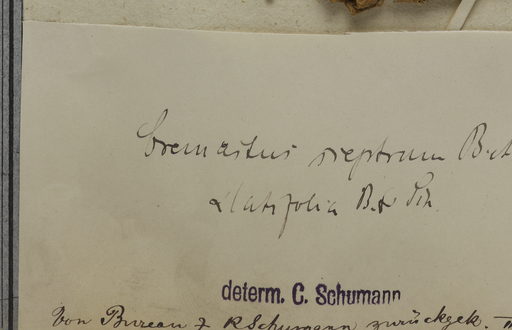 Cremastus sceptrum B. et
latifolia B. & Sch.
determ. C. Schumann
Von Bureau z K Schumann zurückgek.